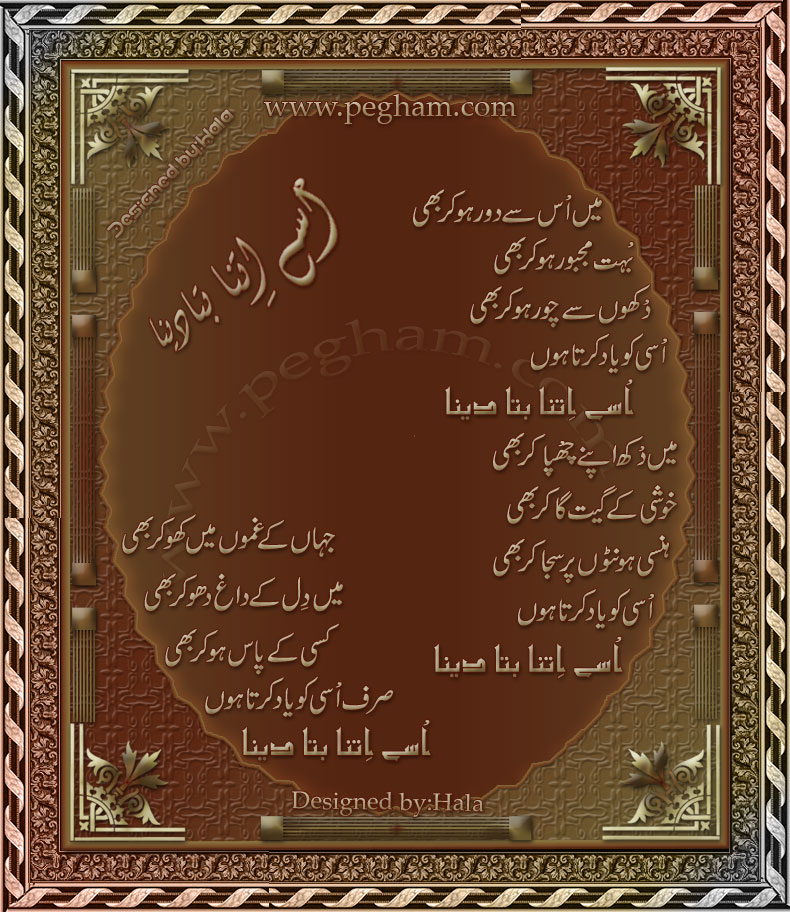 www.pegham.com
Designed by:Hala
اُسے اِتنا بتا دینا
میں اُس سے دور ہو کر بھی
بُہت مجبور ہو کر بھی
دُکھوں سے چور ہو کر بھی
اُسی کو یاد کرتا ہوں
اُسے اِتنا بتا دینا
میں دُکھ اپنے چُھپا کر بھی
خوشی کے گیت گا کر بھی
ہنسی ہونٹوں پر سجا کر بھی
اُسی کو یاد کرتا ہوں
اُسے اِتنا بتا دینا
جہاں کے غموں میں کھو کر بھی
میں دِل کے داغ دھو کر بھی
کسی کے پاس ہو کر بھی
صرف اُسی کو یاد کرتا ہوں
اُسے اِتنا بتا دینا
www.pegham.com
Designed by:Hala